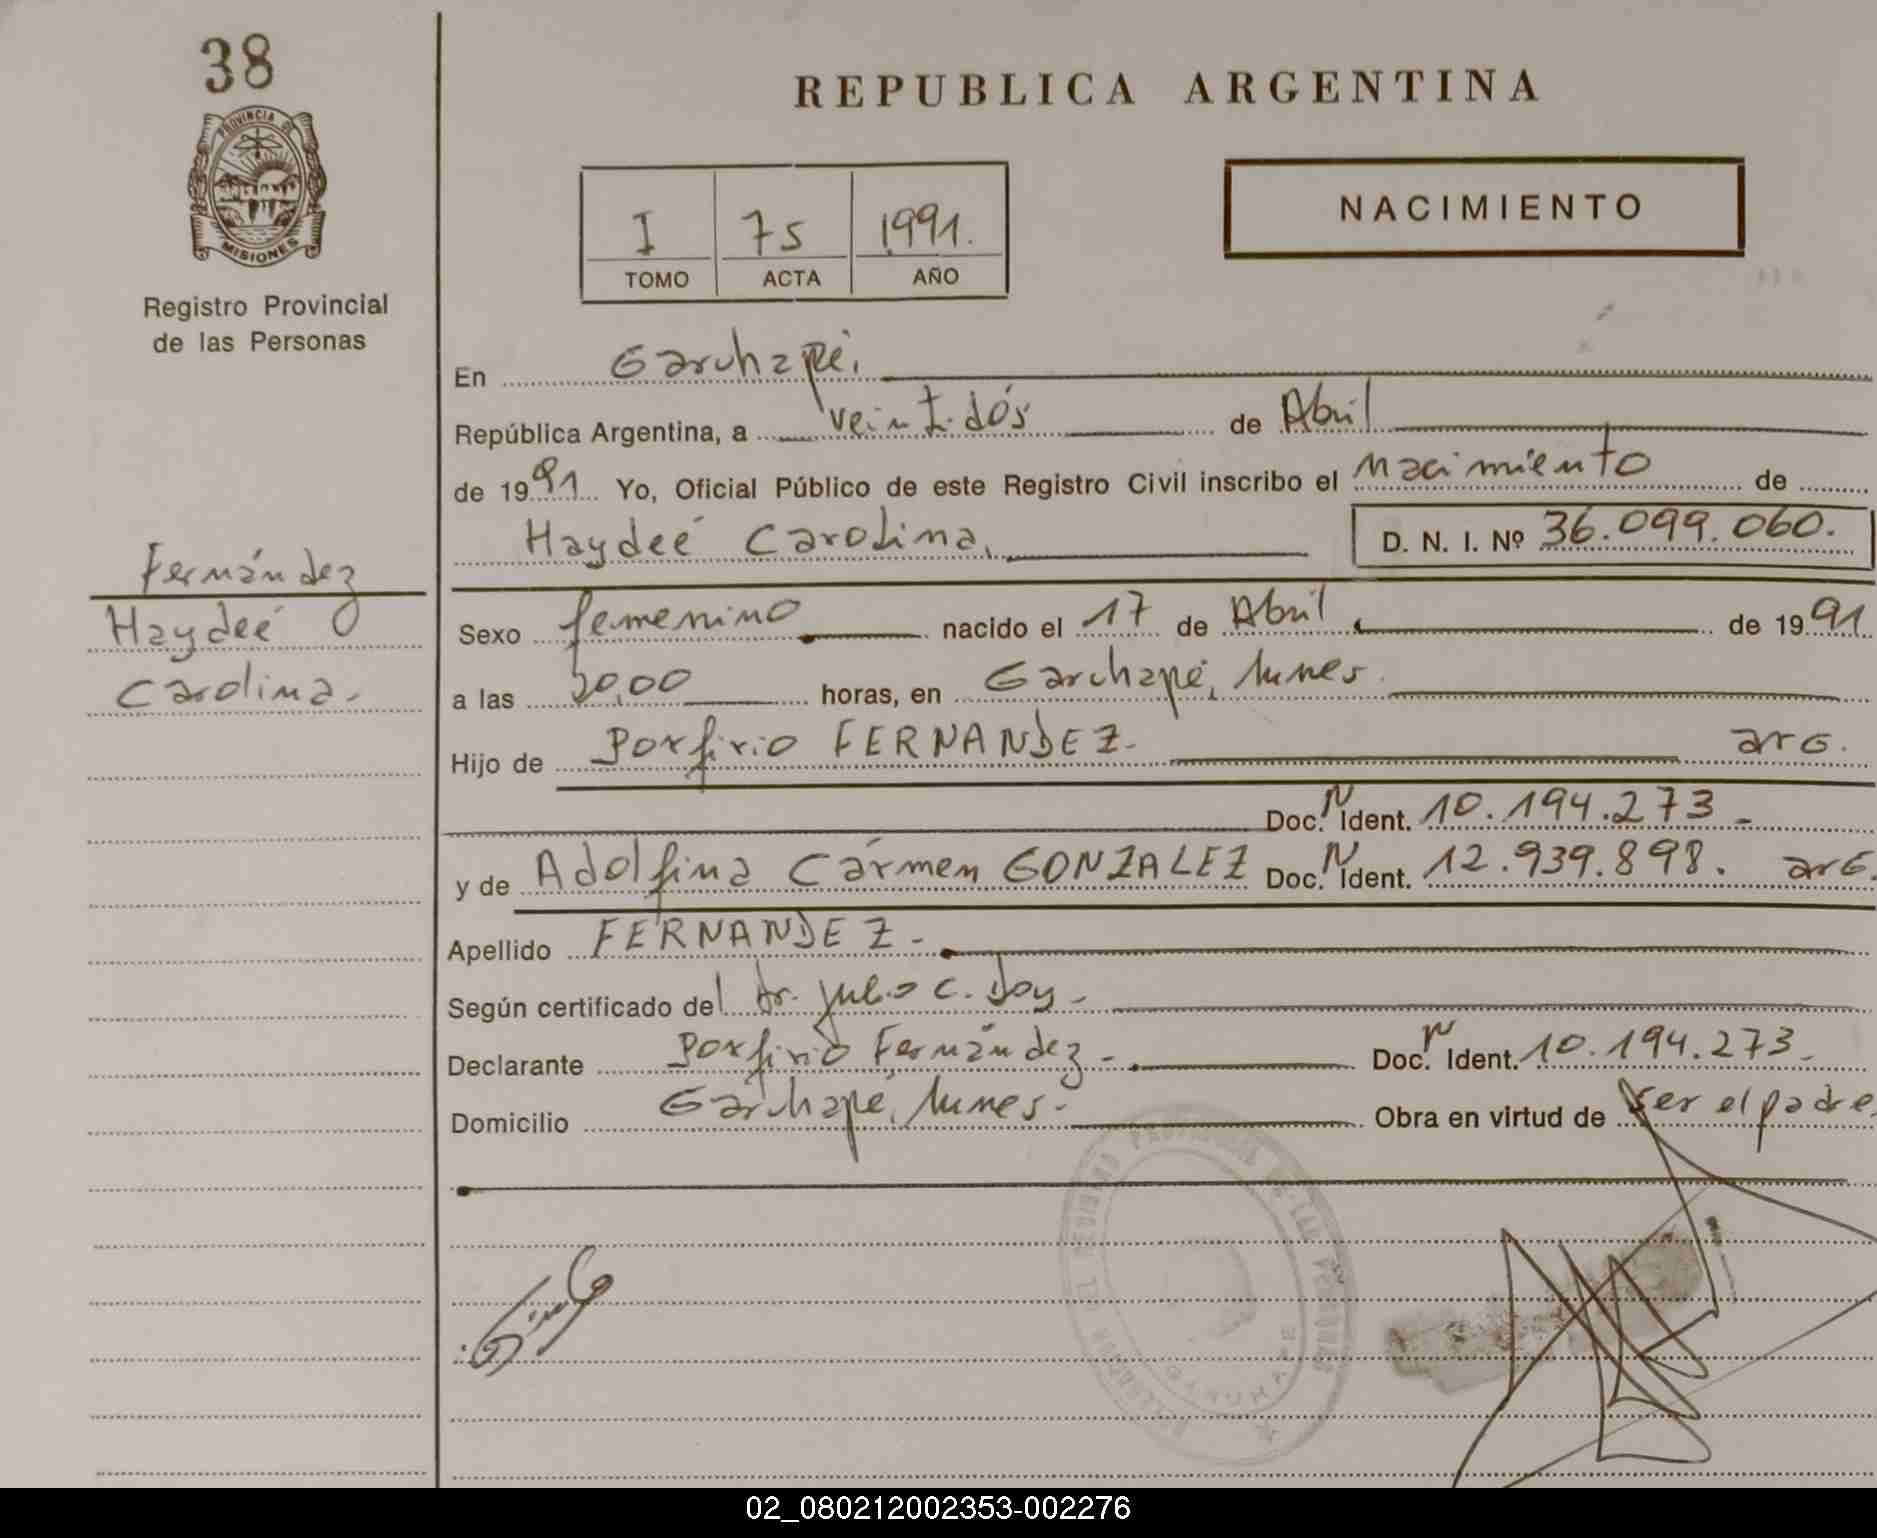 38
PROVINCIA DE
MISIONES
Registro Provincial
de las Personas
Fernández
Haydeé
Carolina.
REPUBLICA ARGENTINA
I 75 1991.
TOMO ACTA AÑO
NACIMIENTO
En Garuhapé,
República Argentina, a veintidós de Abril
de 1991 Yo, Oficial Público de este Registro Civil inscribo el Nacimiento de
Haydeé Carolina, D. N. I. Nº 36.099.060.
Sexo femenino nacido el 17 de Abril de 1991
a las 20,00 horas, en Garuhapé,
Hijo de Porfirio FERNANDEZ. arG.
Doc. N Ident. 10.194.273.-
y de Adolfina Cármen GONZALEZ Doc. N Ident. 12.939.898. arG.
Apellido FERNANDEZ.-
Según certificado del dr. Julio C. Doy.-
Declarante Porfirio Fernández.- Doc. N Ident. 10.194.273.-
Domicilio Garuhapé, Obra en virtud de ser el padre.
REGISTRO PROVINCIAL DE LAS PERSONAS
02_080212002353-002276